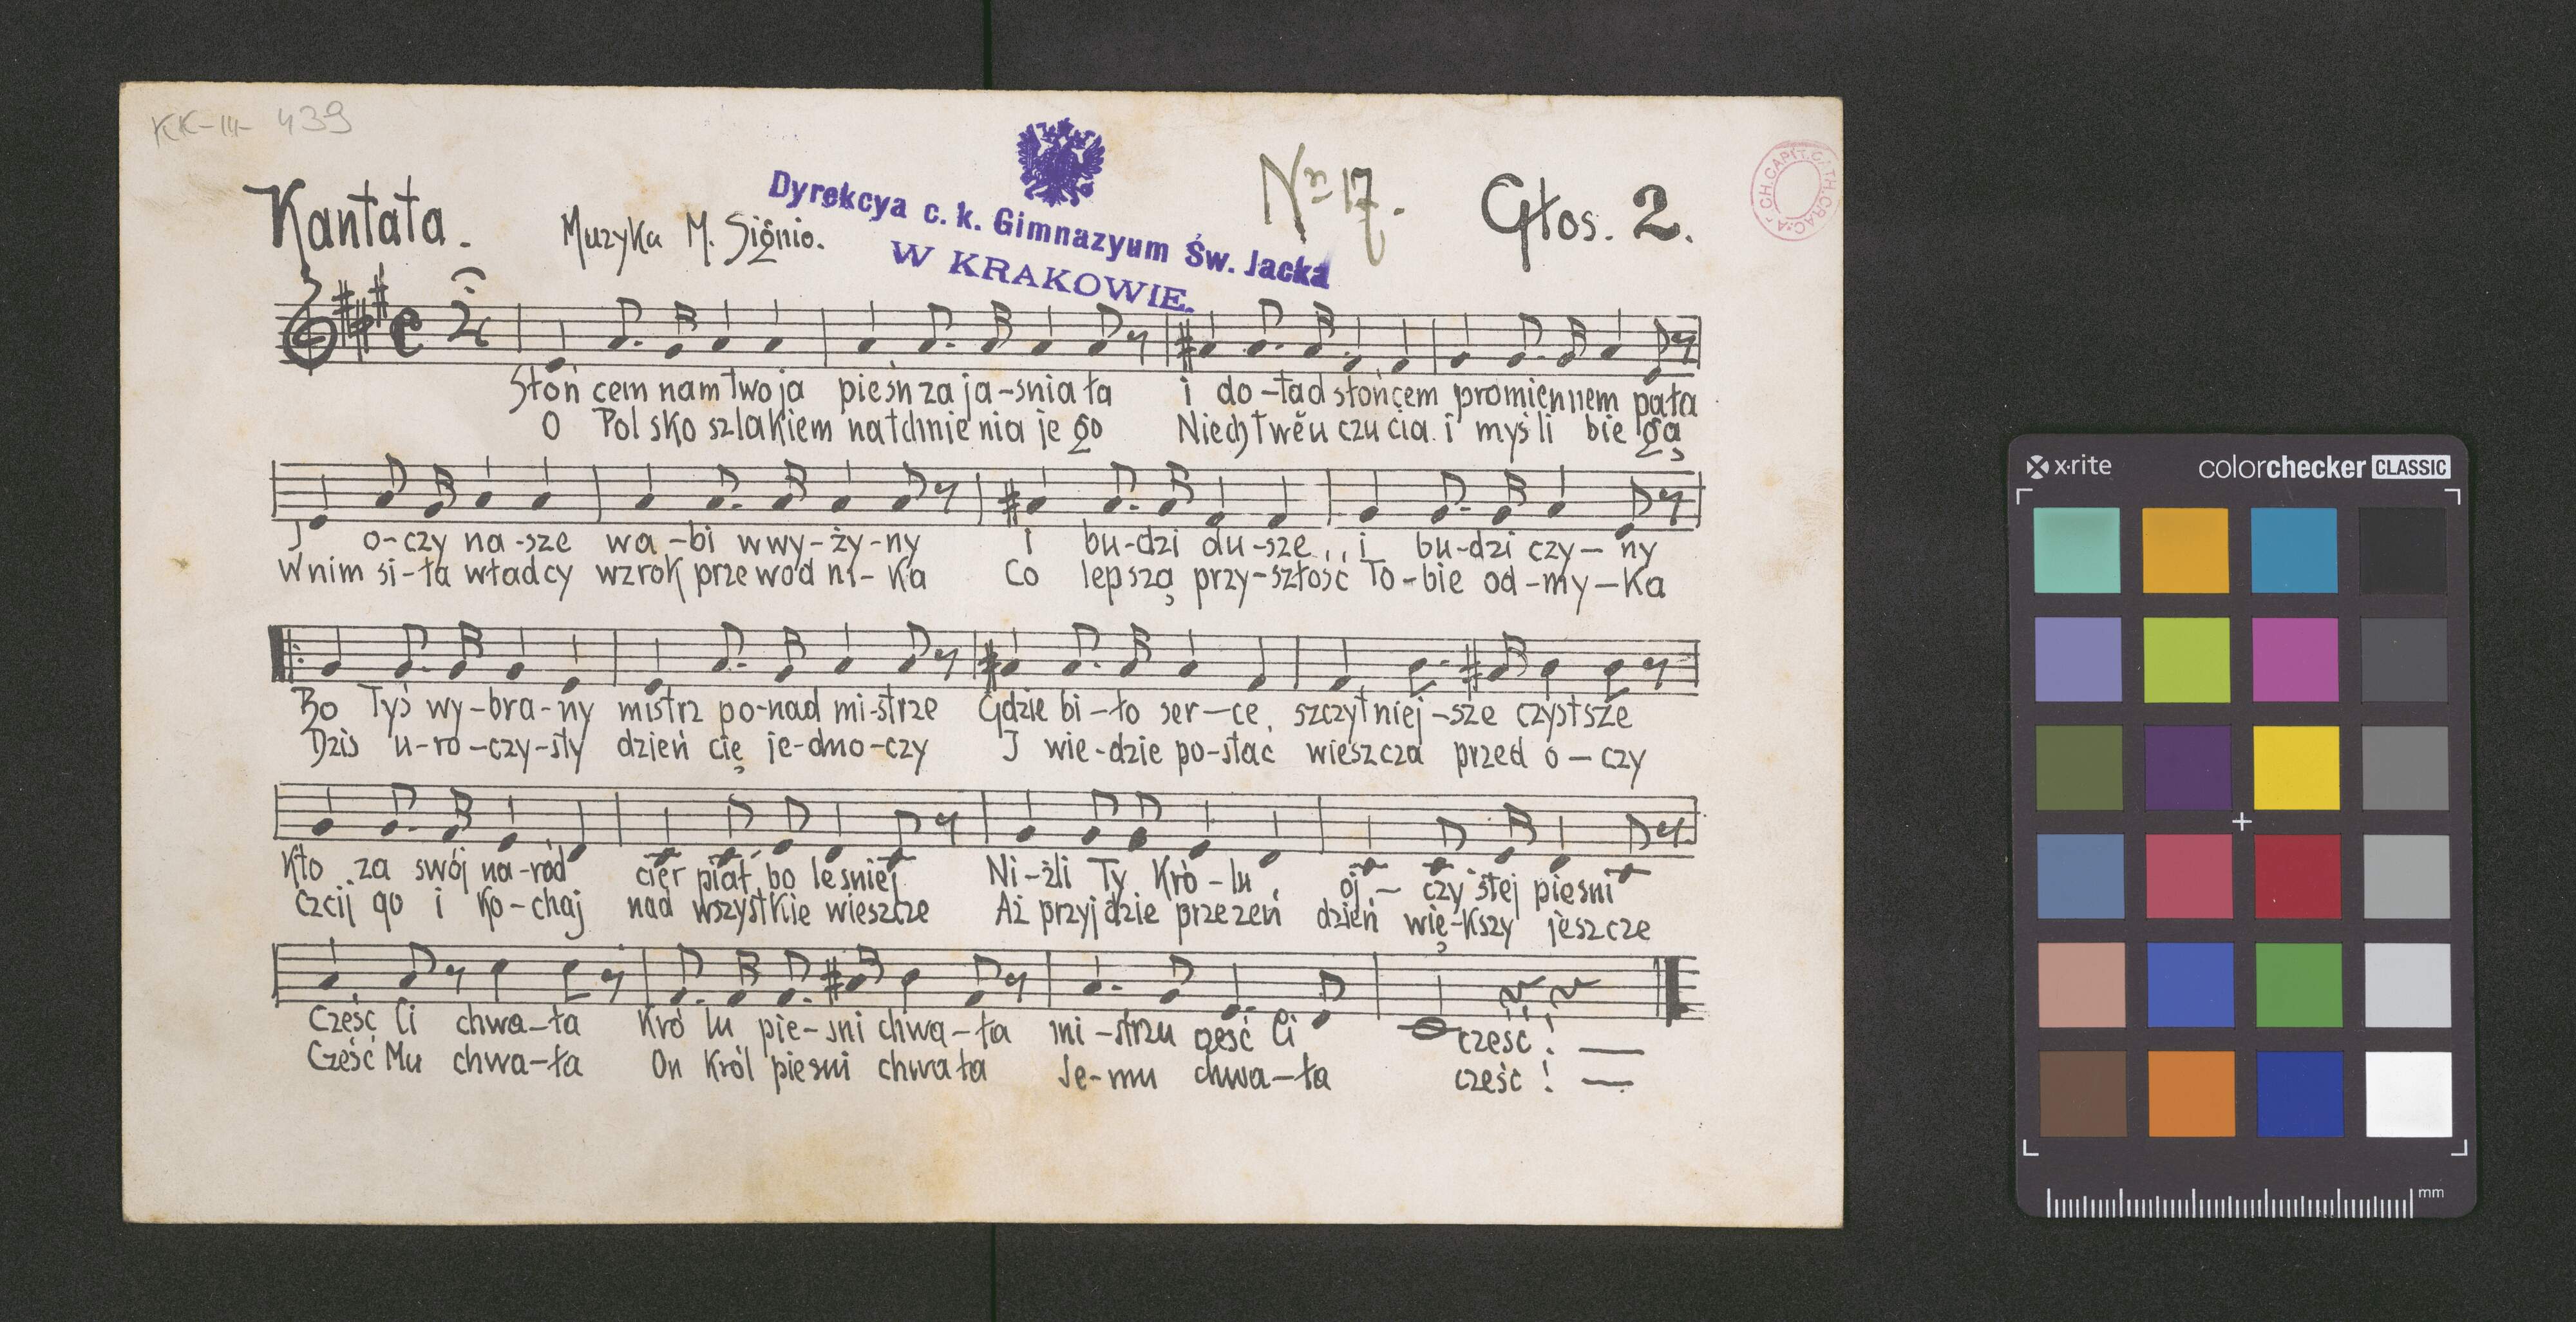 KK-III- 439
Kantata.
Muzyka M. Signio.
Dyrekcya c. k. Gimnazyum Św. Jacka
W KRAKOWIE.
Nr 17.
Głos. 2.
ARCH. CAPIT. CATH. CRAC.
Słoń cem nam Twoja pieśń za ja-śnia ła i do-tąd słońcem promiennem pała
O Pol sko szlakiem natchnie nia je go Niech twe u czu cia i myśli bie gą
J o-czy na-sze wa-bi w wy-ży-ny i bu-dzi du-sze, i bu-dzi czy-ny
W nim si-ła władcy wzrok prze wod ni-ka Co lepszą przy-szłość To-bie od-my-ka
Bo Tyś wy-bra-ny mistrz po-nad mi-strze Gdzie bi-ło ser-ce, szczytniej-sze czystsze
Dziś u-ro-czy-sty dzień cię je-dno-czy J wie-dzie po-stać wieszcza przed o-czy
Kto za swój na-ród cier piał bo leśniej Ni-żli Ty Kró-lu oj-czy stej pieśni
Czcij go i ko-chaj nad wszystkie wieszcze Aż przyjdzie przezeń dzień wię-kszy jeszcze
Cześć Ci chwa-ła Kró lu pie-śni chwa-ła mi-strzu cześć Ci cześć!
Cześć Mu chwa-ła On Król pieśni chwała Je-mu chwa-ła cześć!
x-rite
colorchecker CLASSIC
mm